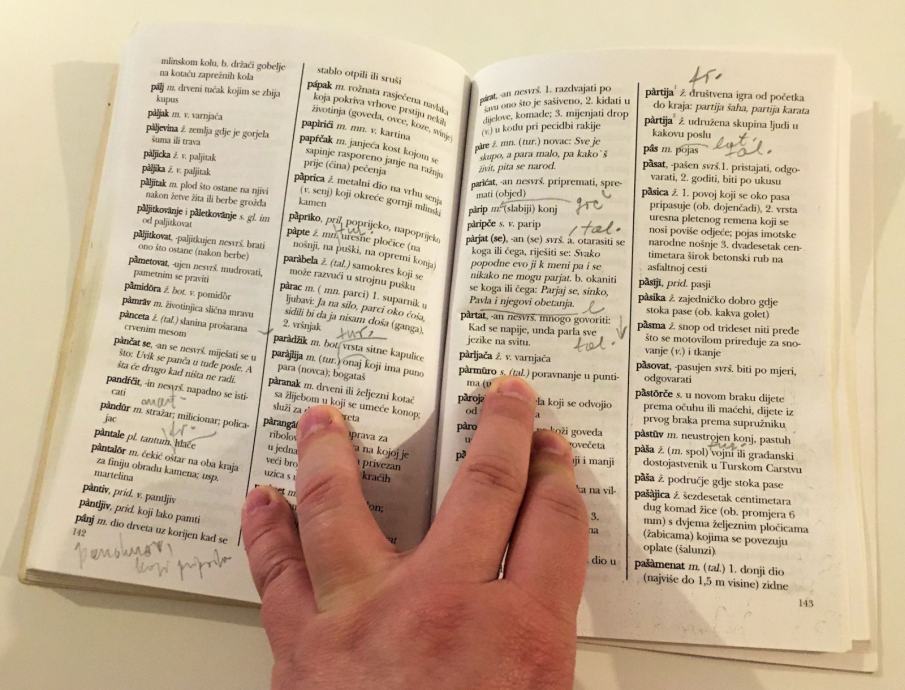 mlinskom kolu, b. držači gobelje
na kotaču zaprežnih kola
pâlj m. drveni tučak kojim se zbija
kupus
pàljak m. v. varnjača
pàljevina ž. zemlja gdje je gorjela
šuma ili trava
pàljicka ž. v. paljitak
pàljika ž. v. paljitak
pàljitak m. plod što ostane na njivi
nakon žetve žita ili berbe grožđa
pàljitkovānje i pàletkovānje s. gl. im
od paljitkovat
pàljitkovat, -paljitkujen nesvrš. brati
ono što ostane (nakon berbe)
pàmetovat, -ujen nesvrš. mudrovati,
pametnim se praviti
pàmidōra ž. bot. v. pomidōr
pàmrāv m. životinjica slična mravu
pànceta ž. (tal.) slanina prošarana
crvenim mesom
pànčat se, -an se nesvrš. miješati se u
što: Uvik se panča u tuđe posle. A
šta će drugo kad ništa ne radi.
pandŕčit, -in nesvrš. napadno se isti-
cati
pàndūr m. stražar; milicionar; polica-
jac
pàntale pl. tantum. hlače
pàntalōr m. čekić oštar na oba kraja
za finiju obradu kamena; usp.
martelina
pàntiv, prid. v. pantljiv
pàntljiv, prid. koji lako pamti
pânj m. dio drveta uz korijen kad se
142
stablo otpili ili sruši
pápak m. rožnata rasječena navlaka
koja pokriva vrhove prstiju nekih
životinja (goveda, ovce, koze, svinje)
papìrići m. mn. v. kartina
papŕčak m. janjeća kost kojom se
sapinje rasporeno janje na ražnju
prije (čina) pečenja
pàprica ž. metalni dio na vrhu senja
(v. senj) koji okreće gornji mlinski
kamen
pàpriko, pril. poprijeko, napoprijeko
pàpte ž. mn. uresne pločice (na
nošnji, na puški, na opremi konja)
paràbela ž. (tal.) samokres koji se
može razvući u strojnu pušku
pàrac m. ( mn. parci) 1. suparnik u
ljubavi: Ja na silo, parci oko ćoša,
sidili bi da ja nisam doša (ganga),
2. vršnjak
paràdžik m. bot. vrsta sitne kapulice
paràjlija m. (tur.) onaj koji ima puno
para (novca); bogataš
pàranak m. drveni ili željezni kotač
sa žlijebom u koji se umeće konop;
služi za
ribolov
u jedna
veći broj
uzica s
párat, -an nesvrš. 1. razdvajati po
šavu ono što je sašiveno, 2. kidati u
dijelove, komade; 3. mijenjati drop
(v.) u kodu pri pecidbi rakije
pàre ž. mn. (tur.) novac: Sve je
skupo, a para malo, pa kako`š
živit, pita se narod.
parićat, -an nesvrš. pripremati, spre-
mati (objed)
pàrip m. (slabiji) konj
pàripče s. v. parip
pàrjat (se), -an (se) svrš. a. otarasiti se
koga ili čega, riješiti se: Svako
popodne evo ji k meni pa i se
nikako ne mogu parjat. b. okaniti
se koga ili čega: Parjaj se, sinko,
Pavla i njegovi obetanja.
pàrtat, -an nesvrš. mnogo govoriti:
Kad se napije, unda parla sve
jezike na svitu.
pàrljača ž. v. varnjača
pàrmūro s. (tal.) poravnanje u punti-
ma
koji se odvojio
od
koži goveda
govečeta
i manji
ka na vil-
3.
dio u
pàrtija¹ ž. društvena igra od početka
do kraja: partija šaha, partija karata
pàrtija² ž. udružena skupina ljudi u
kakovu poslu
pâs m. pojas
pàsat, -pašen svrš.1. pristajati, odgo-
varati, 2. goditi, biti po ukusu
pàsica ž. 1. povoj koji se oko pasa
pripasuje (ob. dojenčadi), 2. vrsta
uresna pletenog remena koji se
nosi poviše odjeće; pojas imotske
narodne nošnje 3. dvadesetak cen-
timetara širok betonski rub na
asfaltnoj cesti
pàsīji, prid. pasji
pàsika ž. zajedničko dobro gdje
stoka pase (ob. kakva golet)
pàsma ž. snop od trideset niti pređe
što se motovilom priređuje za sno-
vanje (v.) i tkanje
pàsovat, -pasujen svrš. biti po mjeri,
odgovarati
pàstōrče s. u novom braku dijete
prema očuhu ili maćehi, dijete iz
prvog braka prema supružniku
pàstūv m. neustrojen konj, pastuh
pàša ž. (m. spol) vojni ili građanski
dostojastvenik u Turskom Carstvu
pàša ž. područje gdje stoka pase
pašàjica ž. šezdesetak centimetara
dug komad žice (ob. promjera 6
mm) s dvjema željeznim pločicama
(žabicama) kojima se povezuju
oplate (šalunzi)
pašàmenat m. (tal.) 1. donji dio
(najviše do 1,5 m visine) zidne
143